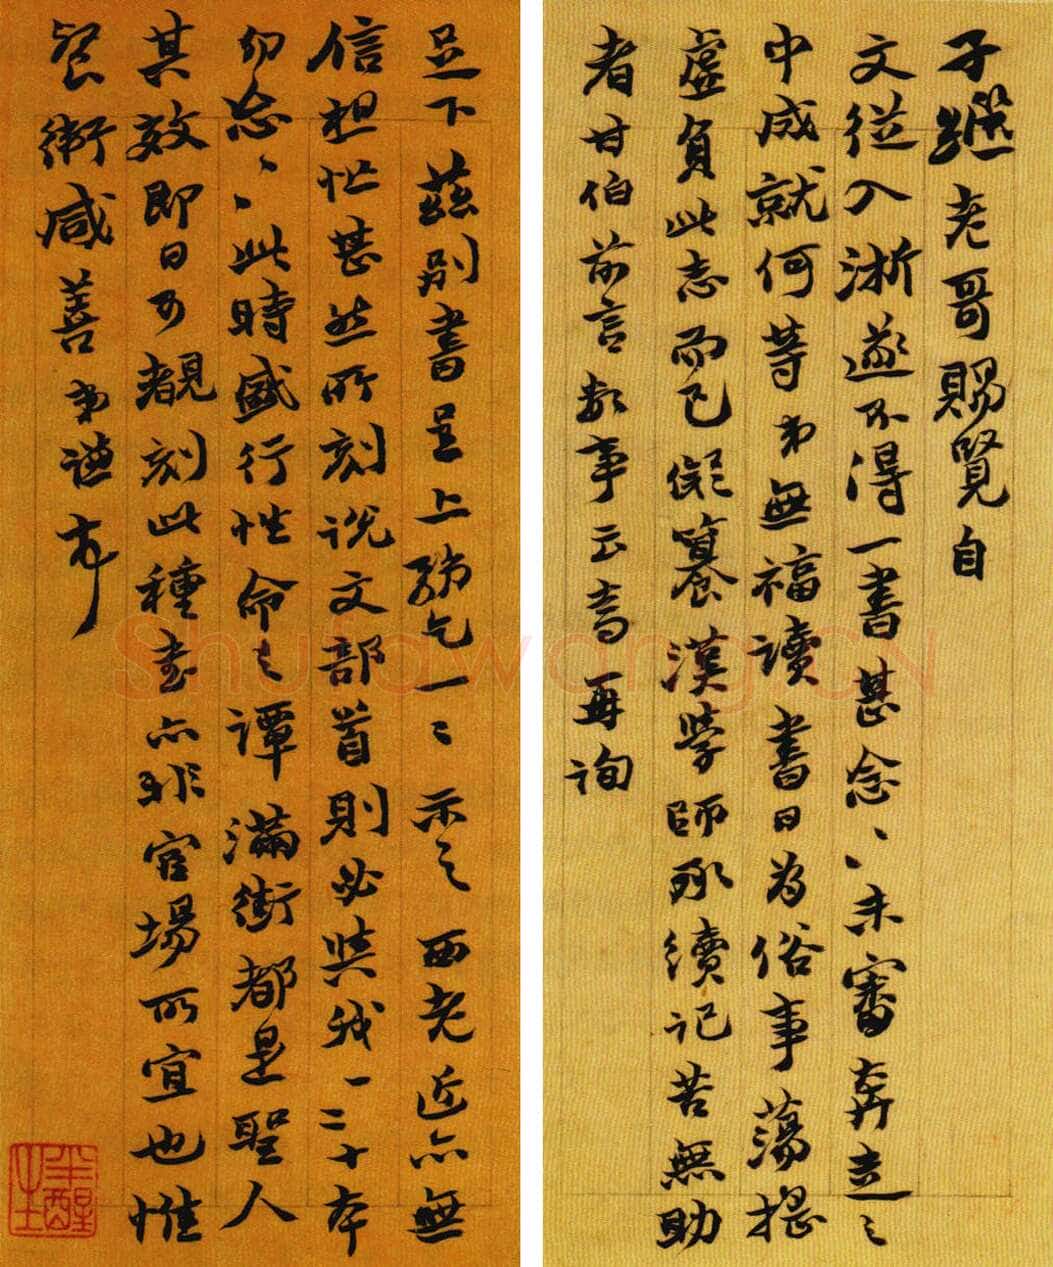 子繼老哥賜覽自
文從入浙遂不得一書甚念、、未審奔走之
中成就何等弟無福讀書日為俗事蕩搖
虛負此志而已儗篹漢學師承續記苦無助
者甘伯前言數事云當再詢
足下茲別書呈上乞一二示之西老近亦無
信想忙甚然所刻說文部首則必與我一二十本
切念、、此時盛行性命之譚滿街都是聖人
其效即日可覩刻此種書亦非官場所宜也惟
餐衛咸善弟謙
Shufawang.CN